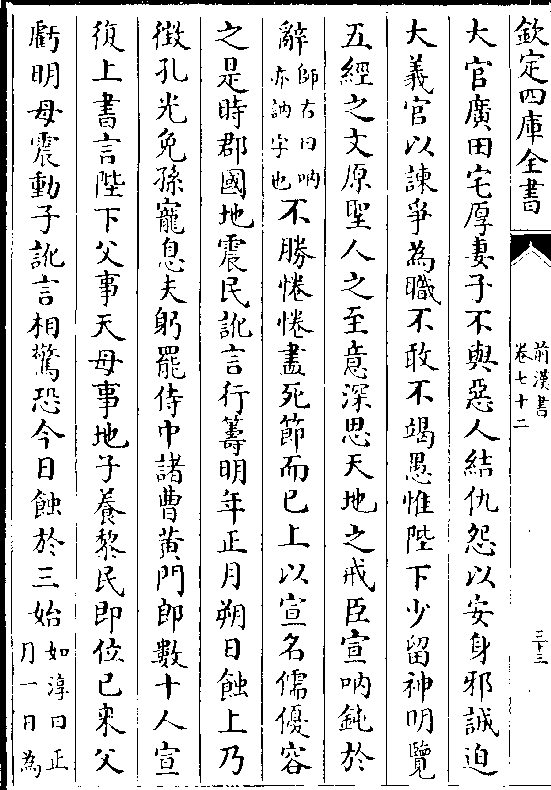 欽定四庫全書
前漢書
卷七十二
三十三
大官廣田宅厚妻子不與惡人結仇怨以安身邪誠迫
大義官以諫爭為職不敢不竭愚惟陛下少留神明覽
五經之文原聖人之至意深思天地之戒臣宣呐鈍於
辭師古曰呐亦訥字也不勝惓惓盡死節而已上以宣名儒優容
之是時郡國地震民訛言行籌明年正月朔日蝕上乃
徴孔光免孫寵息夫躬罷侍中諸曹黄門郎數十人宣
復上書言陛下父事天母事地子養黎民即位已來父
虧明母震動子訛言相驚恐今日蝕於三始如淳曰正月一日為